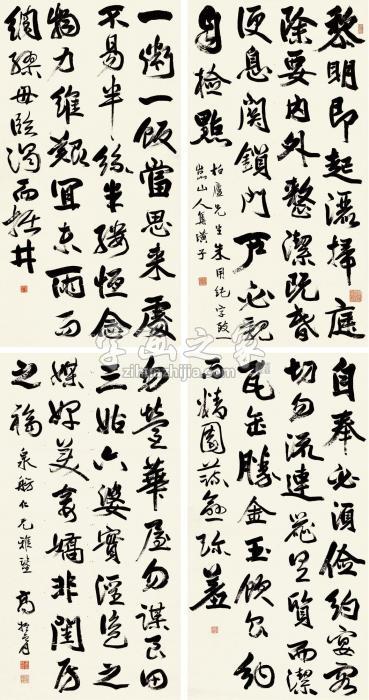 黎明即起灑掃庭
除要内外整潔既昏
便息關鎖門户必親
自檢點
柏廬先生朱用純字致一
崑山人集璜子
一粥一飯當思来處
不易半絲半縷恒念
物力維艱宜未雨而
綢繆毋臨渴而掘井
自奉必須儉約宴客
切勿流連器具質而潔
瓦缶勝金玉飲食約
而精園蔬愈珍羞
勿營華屋勿謀良田
三姑六婆實淫盜之
媒婢美妾嬌非閨房
之福
泉舫仁兄雅鑒 高振霄
字画之家
zihuazhijia.com